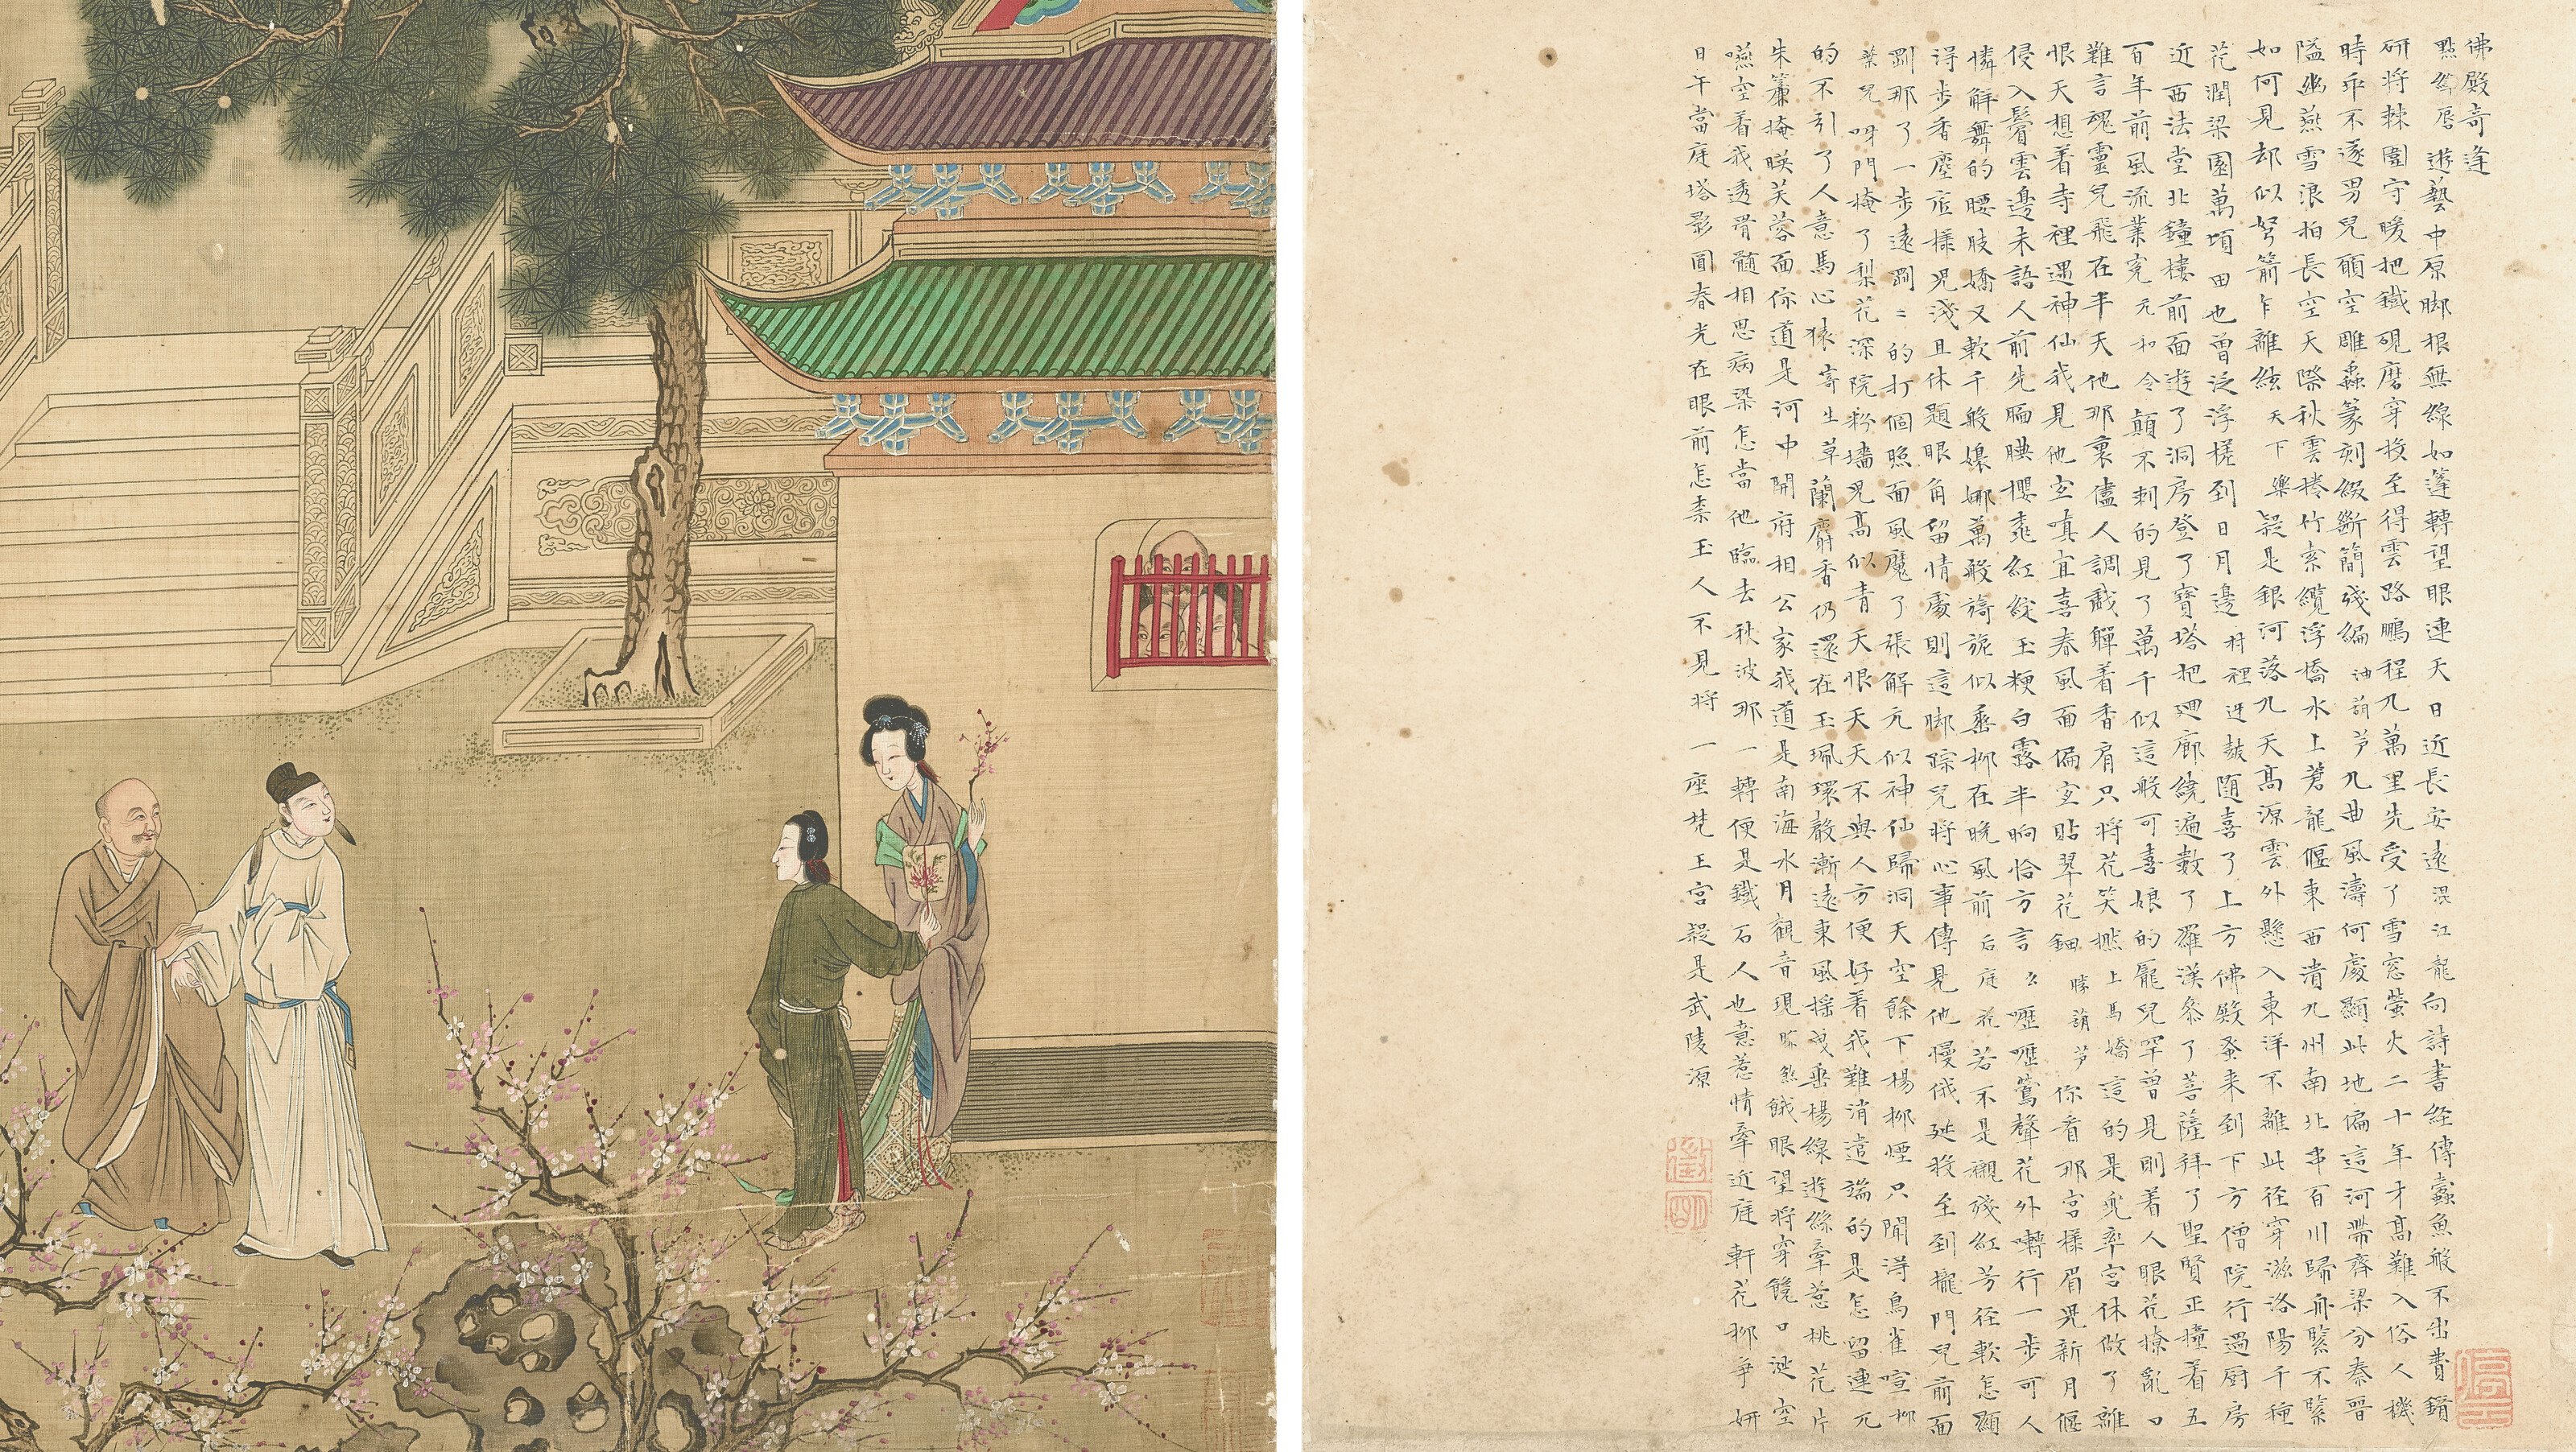 佛殿奇逢
點絳唇遊藝中原脚根無線如蓬轉望眼連天日近長安遠混江龍向詩書経傳蠹魚般不出費鑽
研將棘圍守暖把鐵硯磨穿投至得雲路鵬程九萬里先受了雪窓螢火二十年才高難入俗人機
時乖不遂男兒願空雕蟲篆刻綴斷簡殘編油葫芦九曲風濤何處顯此地偏這河帶齊梁分秦晉
隘幽燕雪浪拍長空天際秋雲捲竹索纜浮橋水上蒼龍偃東西潰九州南北串百川歸舟緊不緊
如何見却似弩箭乍離絃天下樂疑是銀河落九天高源雲外懸入東洋不離此徑穿滋洛陽千種
花潤梁園萬頃田也曾泛浮槎到日月邊村裡迓鼓随喜了上方佛殿蚤来到下方僧院行過厨房
近西法堂北鐘樓前面遊了洞房登了寶塔把廻廊繞遍數了羅漢叅了菩薩拜了聖賢正撞着五
百年前風流業寃元和令顛不剌的見了萬千似這般可喜娘的龎兒罕曾見則着人眼花撩亂口
難言魂靈兒飛在半天他那裏儘人調戲軃着香肩只將花笑撚上馬嬌這的是兜率宮休做了離
恨天想着寺裡遇神仙我見他宜嗔宜喜春風面偏宜貼翠花鈿勝葫芦你看那宮樣眉兒新月偃
侵入鬢雲邊未語人前先腼腆櫻桃紅綻玉粳白露半晌恰方言么嚦嚦鶯聲花外囀行一步可人
憐解舞的腰肢嬌又軟千般嬝娜萬般旖旎似垂柳在晚風前后庭花若不是襯殘紅芳徑軟怎顯
得步香塵底樣兒淺且休題眼角留情處則這脚踪兒將心事傳見他慢俄延投至到櫳門兒前面
剛那了一步遠剛〻的打個照面風魔了張解元似神仙歸洞天空餘下楊柳煙只聞得鳥雀喧柳
葉兒呀門掩了梨花深院粉墻兒高似青天恨天天不與人方便好着我難消遣端的是怎留連兀
的不引了人意馬心猿寄生草蘭麝香仍還在玉珮環聲漸遠東風摇曳垂楊線遊絲牽惹桃花片
朱簾掩暎芙蓉面你道是河中開府相公家我道是南海水月觀音現賺煞餓眼望將穿饞口涎空
嚥空着我透骨髓相思病染怎當他臨去秋波那一轉便是鐵石人也意惹情牽近庭軒花柳爭妍
日午當庭塔影圓春光在眼前怎柰玉人不見將一座梵王宮疑是武陵源
徵明